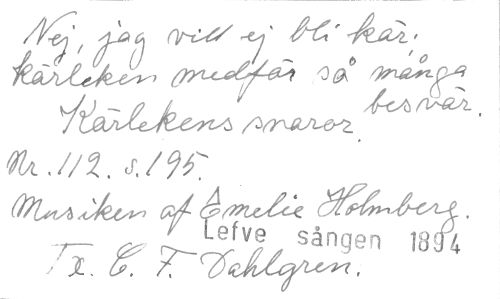 Nej, jag vill ej bli kär,
kärleken medför så många
besvär.
Kärlekens snaror.
Nr. 112. s. 195.
Musiken af Emelie Holmberg.
Lefve sången 1894
Tx. C. F. Dahlgren.